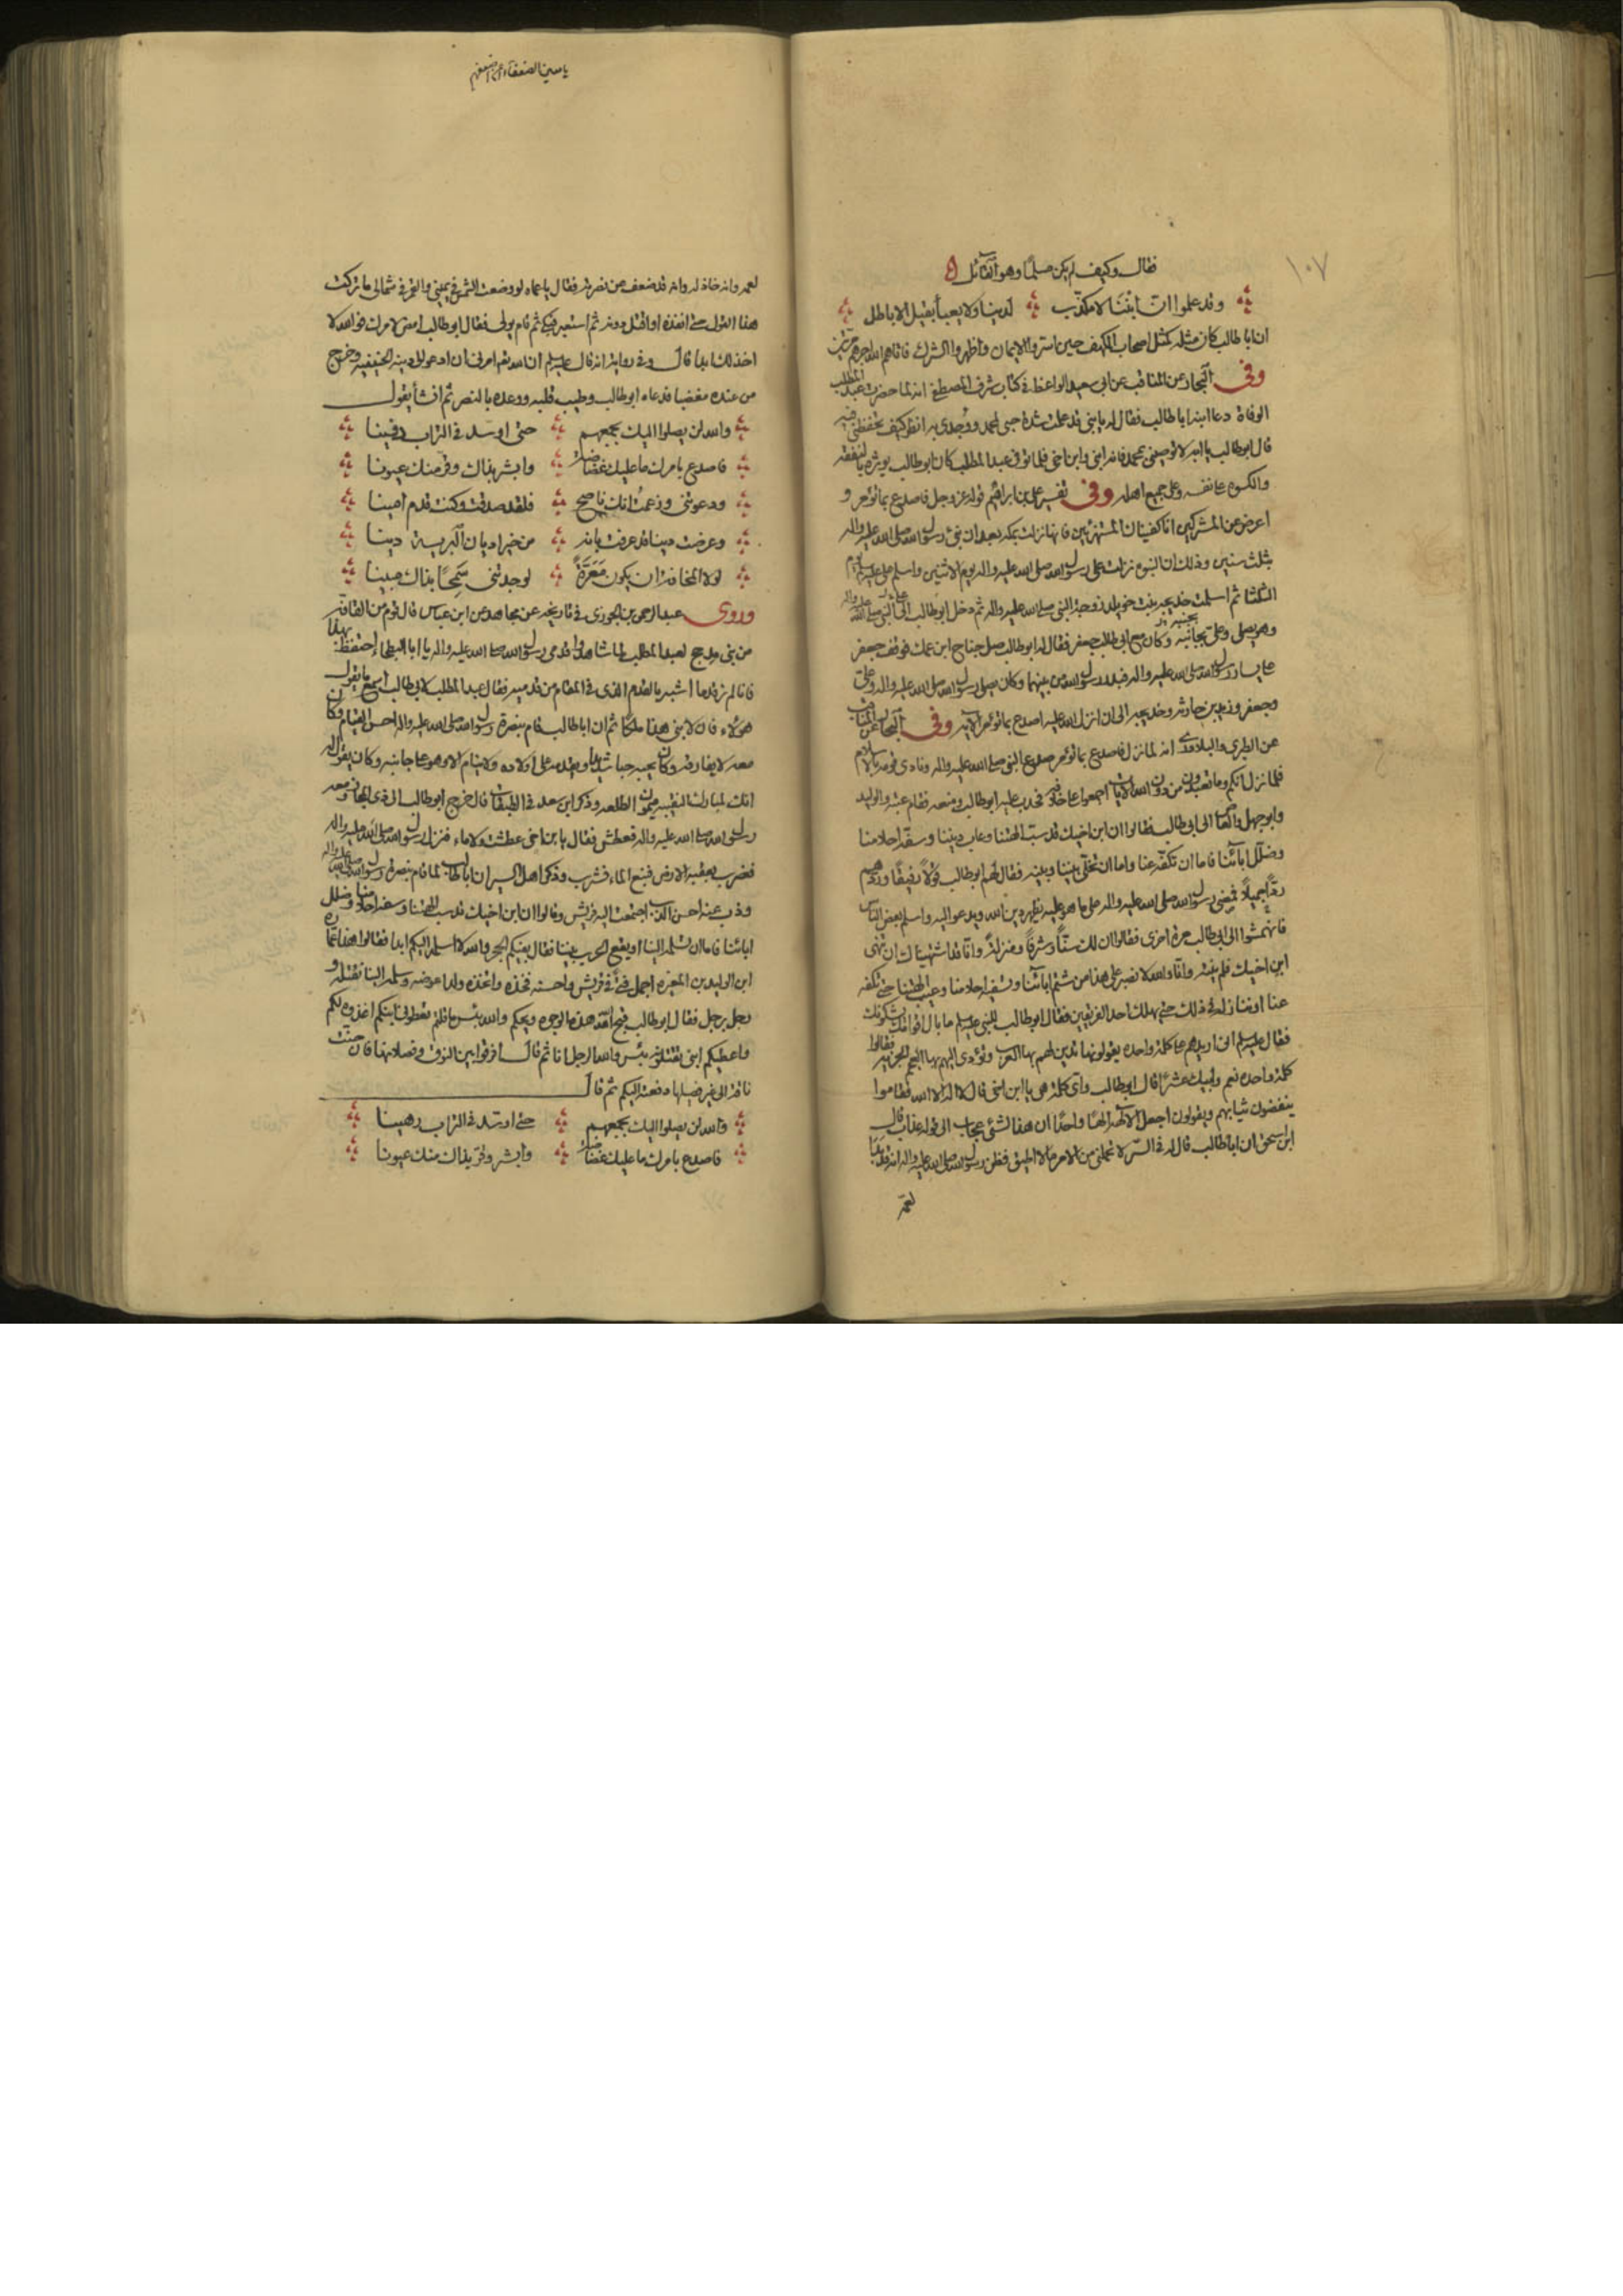 ١٠٧
فقال وكيف لم يكن مسلمًا وهو القائل
وقد علموا انّ ابننا لا مكذّب لدينا ولا يعبأ بقيل الاباطل
ان ابا طالب كان مثله كمثل اصحاب الكهف حين استروا الايمان واظهروا الشرك فاتاهم الله اجرهم مرّتين
وفي البحار عن المناقب عن ابي سعيد الواعظ في كتاب شرف المصطفى انه لما حضرت عبد المطلب
الوفاة دعا ابنه ابا طالب فقال له يا بني قد علمت شدة حبي لمحمد ووجدي به انظر كيف تحفظني فيه
قال ابو طالب يا ابه لا توصني بمحمد فانه ابني وابن اخي فلما توفي عبد المطلب كان ابو طالب يؤثره بالنفقة
والكسوة على نفسه وعلى جميع اهله وفي تفسير علي بن ابراهيم قوله عز وجل فاصدع بما تؤمر و
اعرض عن المشركين انا كفيناك المستهزئين فانها نزلت بمكة بعد ان نبئ رسول الله صلى الله عليه واله
بثلث سنين وذلك ان النبوة نزلت على رسول الله صلى الله عليه واله يوم الاثنين واسلم علي عليه السلم يوم
الثلثا ثم اسلمت خديجة بنت خويلد زوجة النبي صلى الله عليه واله ثم دخل ابو طالب الى النبي صلى الله عليه واله
وهو يصلي وعلي بجانبه وكان مع ابي طالب جعفر فقال له ابو طالب صل جناح ابن عمك فوقف جعفر
على يسار رسول الله صلى الله عليه واله فبدر رسول الله من بينهما وكان يصلي رسول الله صلى الله عليه واله وعلي
وجعفر وزيد بن حارثة وخديجة الى ان انزل الله عليه اصدع بما تؤمر الاية وفي البحار عن المناقب
عن الطبري والبلاذري انه لما نزل فاصدع بما تؤمر صدع النبي صلى الله عليه واله ونادى قومه بالاسلام
فلما نزل انكم وما تعبدون من دون الله الايات اجمعوا على خلافه فحدب عليه ابو طالب ومنعه فقام عتبة والوليد
وابو جهل والعاص الى ابي طالب فقالوا ان ابن اخيك قد سبّ الهتنا وعاب ديننا وسفّه احلامنا
وضلّل آبائنا فاما ان تكفّه عنا واما ان تخلّي بيننا وبينه فقال لهم ابو طالب قولًا رفيقًا وردّهم
ردًّا جميلًا فمضى رسول الله صلى الله عليه واله على ما هو عليه يظهر دين الله ويدعو اليه واسلم بعض الناس
فانهمشوا الى ابي طالب مرة اخرى فقالوا ان لك سنًّا وشرفًا ومنزلةً وانّا قد اشتهيناك ان تنهى
ابن اخيك فلم ينته وانّا والله لا نصبر على هذا من شتم آبائنا وتسفيه احلامنا وعيب الهتنا حتى تكفّه
عنا او ننازله في ذلك حتى يهلك احد الفريقين فقال ابو طالب للنبي عليه السلم ما بال اقوامك يشكونك
فقال عليه السلم اني اريدهم على كلمة واحدة يقولونها تدين لهم بها العرب وتؤدي اليهم بها العجم الجزية فقالوا
كلمة واحدة نعم وابيك عشرًا قال ابو طالب واي كلمة هي يا ابن اخي قال لا اله الا الله فقاموا
ينفضون ثيابهم ويقولون اجعل الالهة الهًا واحدًا ان هذا لشئ عجاب الى قوله عذاب قال
ابن اسحق ان ابا طالب قال له في السّر لا تحملني من الامر ما لا اطيق فظن رسول الله صلى الله عليه واله انه قد بدا
لعمّه
لعمه وانه خاذله وانه قد ضعف عن نصرته فقال يا عماه لو وضعت الشمس في يميني والقمر في شمالي ما تركت
هذا القول حتى انفذه او اقتل دونه ثم استعبر فبكى ثم قام يولي فقال ابو طالب امض لامرك فوالله لا
اخذلك ابدا قال وفي رواية انه قال عليه السلم ان الله تعم امرني ان ادعو الى دينه الحنيفية وخرج
من عنده مغضبا فدعاه ابو طالب وطيب قلبه ووعده بالنصر ثم انشأ يقول
والله لن يصلوا اليك بجمعهم حتى اوسد في التراب دفينا
فاصدع بامرك ما عليك غضاضة وابشر بذاك وقر منك عيونا
ودعوتني وزعمت انك ناصح فلقد صدقت وكنت قدم امينا
وعرضت دينا قد عرفت بانه من خير اديان البرية دينا
لولا المخافة ان يكون مَعَرَّةً لوجدتني سَمِحًا بذاك مبينا
وروى عبد الرحمن بن الجوزي في تاريخه عن مجاهد عن ابن عباس قال قوم من القافة
من بني مدلج لعبد المطلب لما شاهدوا قدمي رسول الله صلى الله عليه واله يا ابا البطحا احتفظ بهذا
فانا لم نر قدما اشبه بالقدم الذي في المقام من قدميه فقال عبد المطلب لابي طالب اسمع ما يقول
هؤلاء فان لابني هذا ملكا ثم ان ابا طالب قام بنصرة رسول الله صلى الله عليه واله احسن القيام وكان
معه لا يفارقه وكان يحبه حبا شديدا ويقدمه على اولاده ولا ينام الا وهو على جانبه وكان يقول له
انك لمبارك النقيبة ميمون الطلعة وذكر ابن سعد في الطبقات قال خرج ابو طالب الى ذي المجاز ومعه
رسول الله صلى الله عليه واله فعطش فقال يا بن اخي عطشت ولا ماء فنزل رسول الله صلى الله عليه واله
فضرب بعقبه الارض فنبع الماء فشرب وذكر اهل السير ان ابا طالب لما قام بنصرة رسول الله صلى الله عليه واله
وذب عنه احسن الذب اجتمعت اليه قريش وقالوا ان ابن اخيك قد سب الهتنا وسفه احلامنا وضلل
ابائنا فاما ان تسلمه الينا او يقع الحرب بيننا فقال بفيكم الحجر والله لا اسلمه اليكم ابدا فقالوا هذا عمارة
ابن الوليد بن المغيرة اجمل فتى في قريش واحسنه فخذه واتخذه ولدا عوضه وسلمه الينا نقتله و
رجل برجل فقال ابو طالب قبح الله هذه الوجوه ويحكم والله بئس ما قلتم تعطوني ابنكم اغذوه لكم
واعطيكم ابني تقتلونه بئس والله الرجل انا ثم قال افرقوا بين النوق وفصلانها فان حنت
ناقة الى غير فصيلها دفعته اليكم ثم قال
والله لن يصلوا اليك بجمعهم حتى اوسد في التراب رهينا
فاصدع بامرك ما عليك غضاضة وابشر وقر بذاك منك عيونا